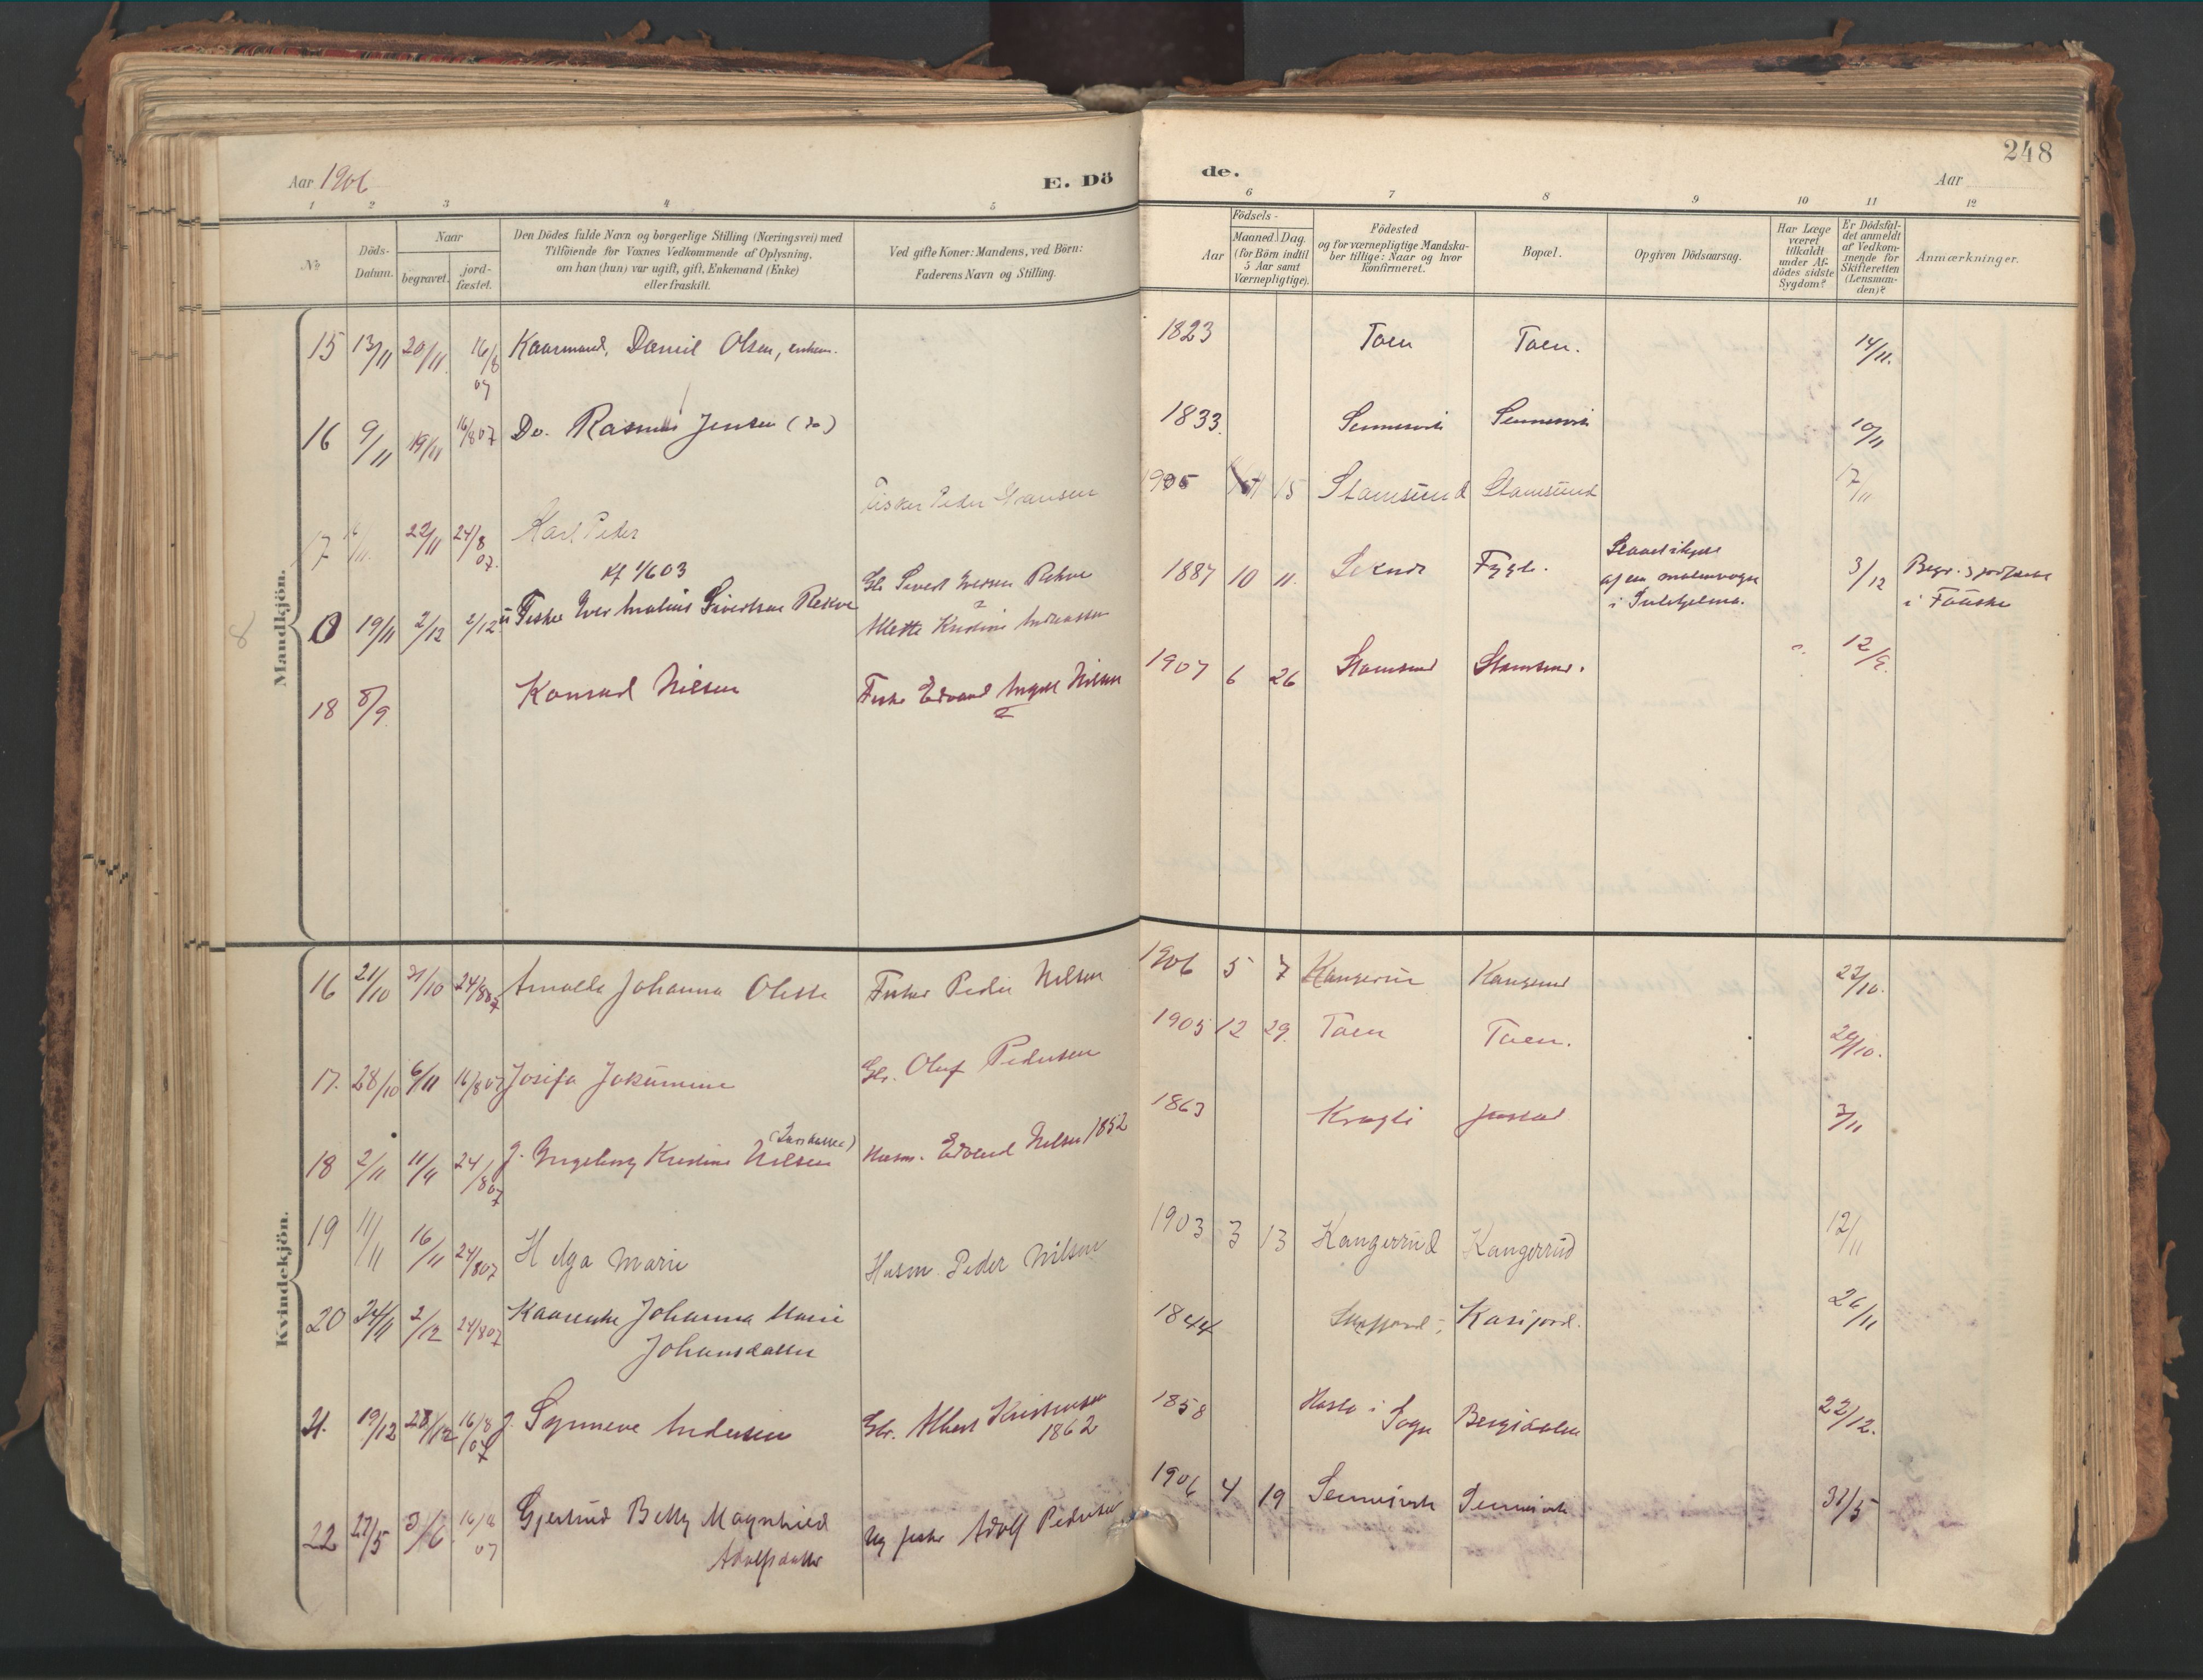 248
Aar 1906
E. Dö
de.
Aar
1 2 3 4 5 6 7 8 9 10 11 12
No
Döds-
Datum.
Naar
begravet.
jord-
fæstet.
Den Dödes fulde Navn og borgerlige Stilling (Næringsvei) med
Tilföiende for Voxnes Vedkommende af Oplysning,
om han (hun) var ugift, gift, Enkemand (Enke)
eller fraskilt.
Ved gifte Koner: Mandens, ved Börn:
Faderens Navn og Stilling.
Födsels-
Aar
Maaned. Dag.
(for Börn indtil
5 Aar samt
Værnepligtige).
Födested
og for værnepligtige Mandska-
ber tillige: Naar og hvor
konfirmeret.
Bopæl.
Opgiven Dödsaarsag.
Har Læge
været
tilkaldt
under Af-
dödes sidste
Sygdom?
Er Dödsfal-
det anmeldt
af Vedkom-
mende for
Skifteretten
(Lensman-
den)?
Anmærkninger.
Mandkjön.
15 13/11 20/11 16/8 07 Kaarmand, Daniel Olsen, enkem. 1823 Toen Toen. 14/11.
16 9/11 19/11 16/8 07 Do. Rasmus Jensen (do) 1833. Sennesvik Sennesvik 10/11
17 /11. 22/11 24/8 07. Karl Peder Fisker Peder Hansen 1905 15 Stamsund Stamsund 17/11
8 0 19/11 2/12 2/12 Kf 1/6 03
Fisker Iver Andreas Sivertsen Rekve Gbr. Sivert Iversen Rekve
Mette Kristine Andreassen 1887 10 11. Fygle. af en malmvogn
i Sulitjelma. 3/12 Begr. & jordfæstet
i Fauske
18 8/9. Konrad Nilsen Fisker Edvard Nilsen 1907 6 26 Stamsund Stamsund. 12/9.
Kvindekjön.
16 21/10 31/10 24/8 07 Johanna Fisker Peder Nilsen 1906 5 7 Kangerud Kangerud 22/10.
17. 28/10 6/11 16/8 07 Josefa Jakumine Gbr. Oluf Pedersen 1905 12 29. Toen Toen. 29/10.
18 2/11 11/11 24/8 07 g. Ingeborg Kristine Nilsen Husm. Edvard Nilsen 1852 1863 Justad 3/11
19 11/11 16/11 24/8 07 Helga Marie Husm. Peder Nilsen 1903 3 13 Kangerrud Kangerrud 12/11
20 24/11 2/12 24/8 07 Johanna Marie
Johansdatter 1844 26/11
21. 19/12 28/12 16/8 07 g. Synneve Andersen Gbr. Albert Kristensen
1862 1858 Haslo i
Sogn 22/12.
22 27/5 3/6 16/8 07 Gjertrud Betty Magnhild
Adolfsdatter Ug fisker Adolf Pedersen 1906 4 19 Sennesvik Sennesvik 31/5